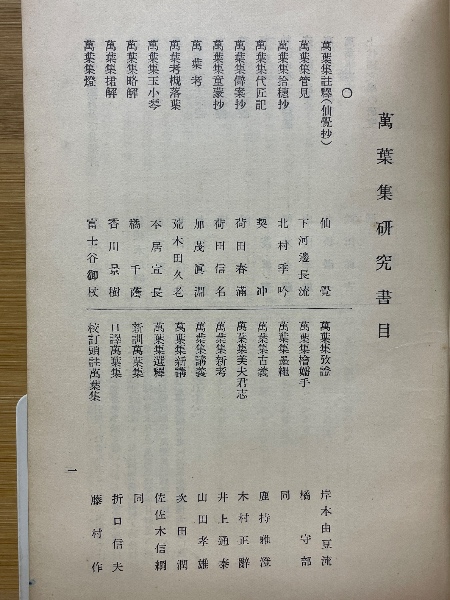 萬葉集研究書目
○
萬葉集註釋(仙覺抄) 仙覺
萬葉集管見 下河邊長流
萬葉集拾穗抄 北村季吟
萬葉集代匠記 契沖
萬葉集僻案抄 荷田春滿
萬葉集童蒙抄 荷田信名
萬葉考 加茂眞淵
萬葉考槻落葉 荒木田久老
萬葉集玉小琴 本居宣長
萬葉集略解 橘千蔭
萬葉集捃解 香川景樹
萬葉集燈 富士谷御杖
萬葉集攷證 岸本由豆流
萬葉集檜嬬手 橘守部
萬葉集墨繩 同
萬葉集古義 鹿持雅澄
萬葉集美夫君志 木村正辭
萬葉集新考 井上通泰
萬葉集講義 山田孝雄
萬葉集新講 次田潤
萬葉集選釋 佐佐木信綱
新訓萬葉集 同
口譯萬葉集 折口信夫
校訂頭註萬葉集 藤村作
一